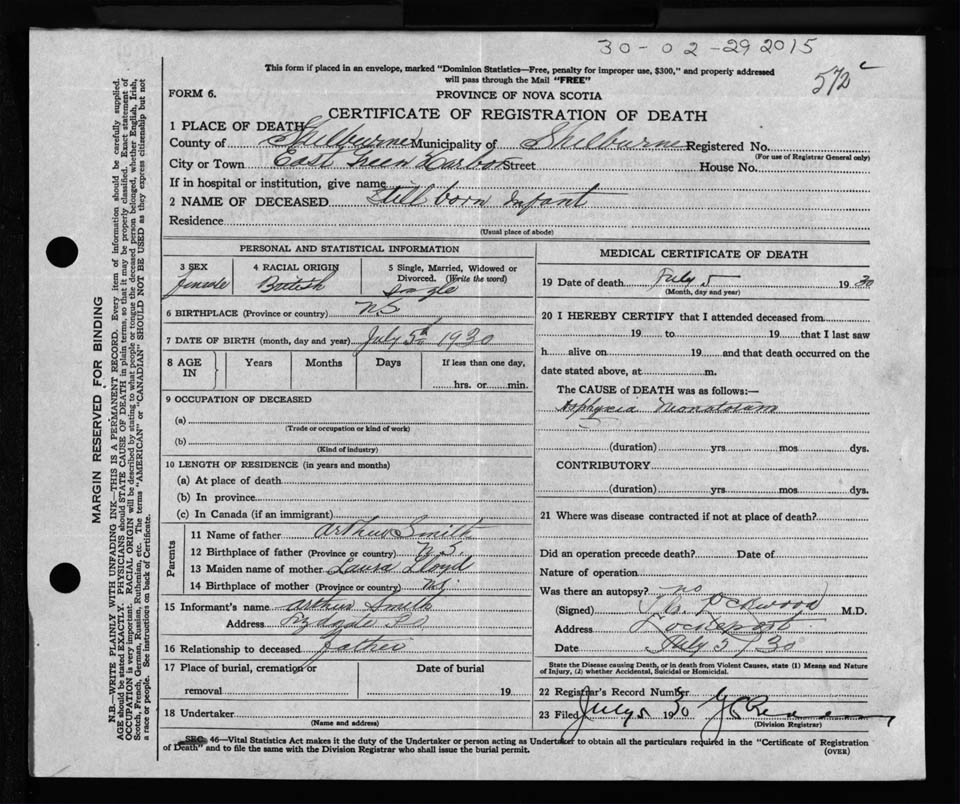 30-02-292015
572 c
This form if placed in an envelope, marked "Dominion Statistics—Free, penalty for improper use, $300," and properly addressed
will pass through the Mail "FREE"
FORM 6.
PROVINCE OF NOVA SCOTIA
CERTIFICATE OF REGISTRATION OF DEATH
1 PLACE OF DEATH
County of Shelburne Municipality of Shelburne Registered No.
(For use of Registrar General only)
City or Town East Green Harbor Street House No.
If in hospital or institution, give name
2 NAME OF DECEASED Still born Infant
Residence
(Usual place of abode)
PERSONAL AND STATISTICAL INFORMATION
3 SEX 4 RACIAL ORIGIN 5 Single, Married, Widowed or
Divorced. (Write the word)
female British Single
6 BIRTHPLACE (Province or country) NS
7 DATE OF BIRTH (month, day and year) July 5th 1930
8 AGE IN Years Months Days If less than one day,
hrs. or min.
9 OCCUPATION OF DECEASED
(a)
(Trade or occupation or kind of work)
(b)
(Kind of industry)
10 LENGTH OF RESIDENCE (in years and months)
(a) At place of death
(b) In province
(c) In Canada (if an immigrant)
Parents
11 Name of father Arthur Smith
12 Birthplace of father (Province or country) N.S.
13 Maiden name of mother Laura Lloyd
14 Birthplace of mother (Province or country) NS
15 Informant's name Arthur Smith
Address
16 Relationship to deceased father
17 Place of burial, cremation or Date of burial
removal 19
18 Undertaker
(Name and address)
MEDICAL CERTIFICATE OF DEATH
19 Date of death July 5 1930
(Month, day and year)
20 I HEREBY CERTIFY that I attended deceased from
19 to 19 that I last saw
h alive on 19 and that death occurred on the
date stated above, at m.
The CAUSE of DEATH was as follows:—
Asphyxia Neonatorum
(duration) yrs mos dys.
CONTRIBUTORY
(duration) yrs mos dys.
21 Where was disease contracted if not at place of death?
Did an operation precede death? Date of
Nature of operation
Was there an autopsy? no
(Signed) Lockwood M.D.
Address Lockeport
Date July 5/30
State the Disease causing Death, or in death from Violent Causes, state (1) Means and Nature
of Injury, (2) whether Accidental, Suicidal or Homicidal.
22 Registrar's Record Number
23 Filed July 5 1930
(Division Registrar)
SEC. 46—Vital Statistics Act makes it the duty of the Undertaker or person acting as Undertaker to obtain all the particulars required in the "Certificate of Registration
of Death" and to file the same with the Division Registrar who shall issue the burial permit.
(OVER)
MARGIN RESERVED FOR BINDING
N.B.—WRITE PLAINLY WITH UNFADING INK—THIS IS A PERMANENT RECORD. Every item of information should be carefully supplied.
AGE should be stated EXACTLY. PHYSICIANS should STATE CAUSE OF DEATH in plain terms, so that it may be properly classified. Exact statement of
OCCUPATION is very important. RACIAL ORIGIN will be described by stating to what people or tongue the deceased person belonged, whether English, Irish,
Scotch, French, German, Russian, Ruthenian, etc. The terms "AMERICAN" or "CANADIAN" SHOULD NOT BE USED as they express citizenship but not
a race or people. See instructions on back of Certificate.